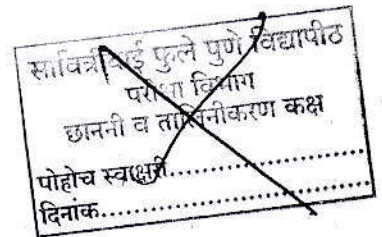 सावित्रीबाई फुले पुणे विद्यापीठ
परीक्षा विभाग
छाननी व तालिनीकरण कक्ष
पोहोच स्वाक्षरी..........................
दिनांक..................................